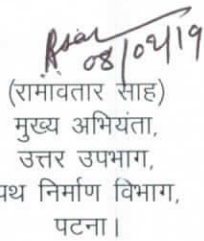 08/02/19
(रामावतार साह)
मुख्य अभियंता,
उत्तर उपभाग,
पथ निर्माण विभाग,
पटना।